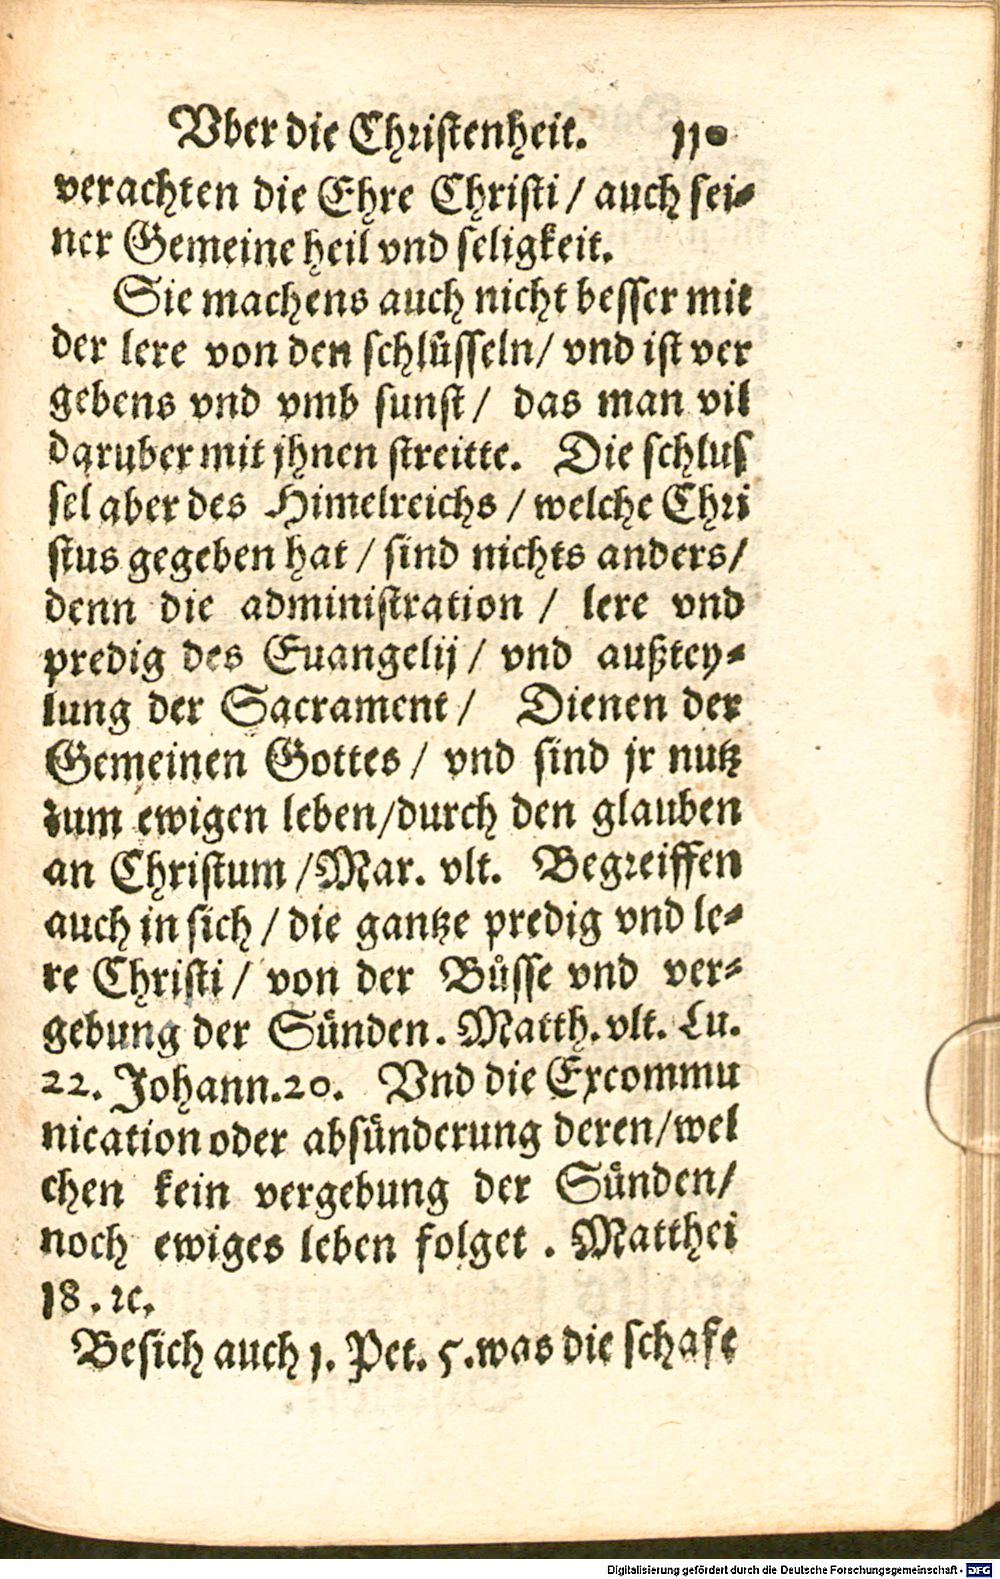 Vber die Christenheit. 110
verachten die Ehre Christi / auch sei-
ner Gemeine heil vnd seligkeit.
Sie machens auch nicht besser mit
der lere von den schlüsseln / vnd ist ver
gebens vnd vmb sunst / das man vil
daruber mit jhnen streitte. Die schlus
sel aber des Himelreichs / welche Chri
stus gegeben hat / sind nichts anders /
denn die administration / lere vnd
predig des Euangelij / vnd außtey-
lung der Sacrament / Dienen der
Gemeinen Gottes / vnd sind jr nutz
zum ewigen leben / durch den glauben
an Christum / Mar. vlt. Begreiffen
auch in sich / die gantze predig vnd le-
re Christi / von der Büsse vnd ver-
gebung der Sünden. Matth. vlt. Lu.
22. Johann. 20. Vnd die Excommu
nication oder absünderung deren / wel
chen kein vergebung der Sünden /
noch ewiges leben folget. Matthei
18. ꝛc.
Besich auch 1. Pet. 5. was die schafe
Digitalisierung gefördert durch die Deutsche Forschungsgemeinschaft - DFG